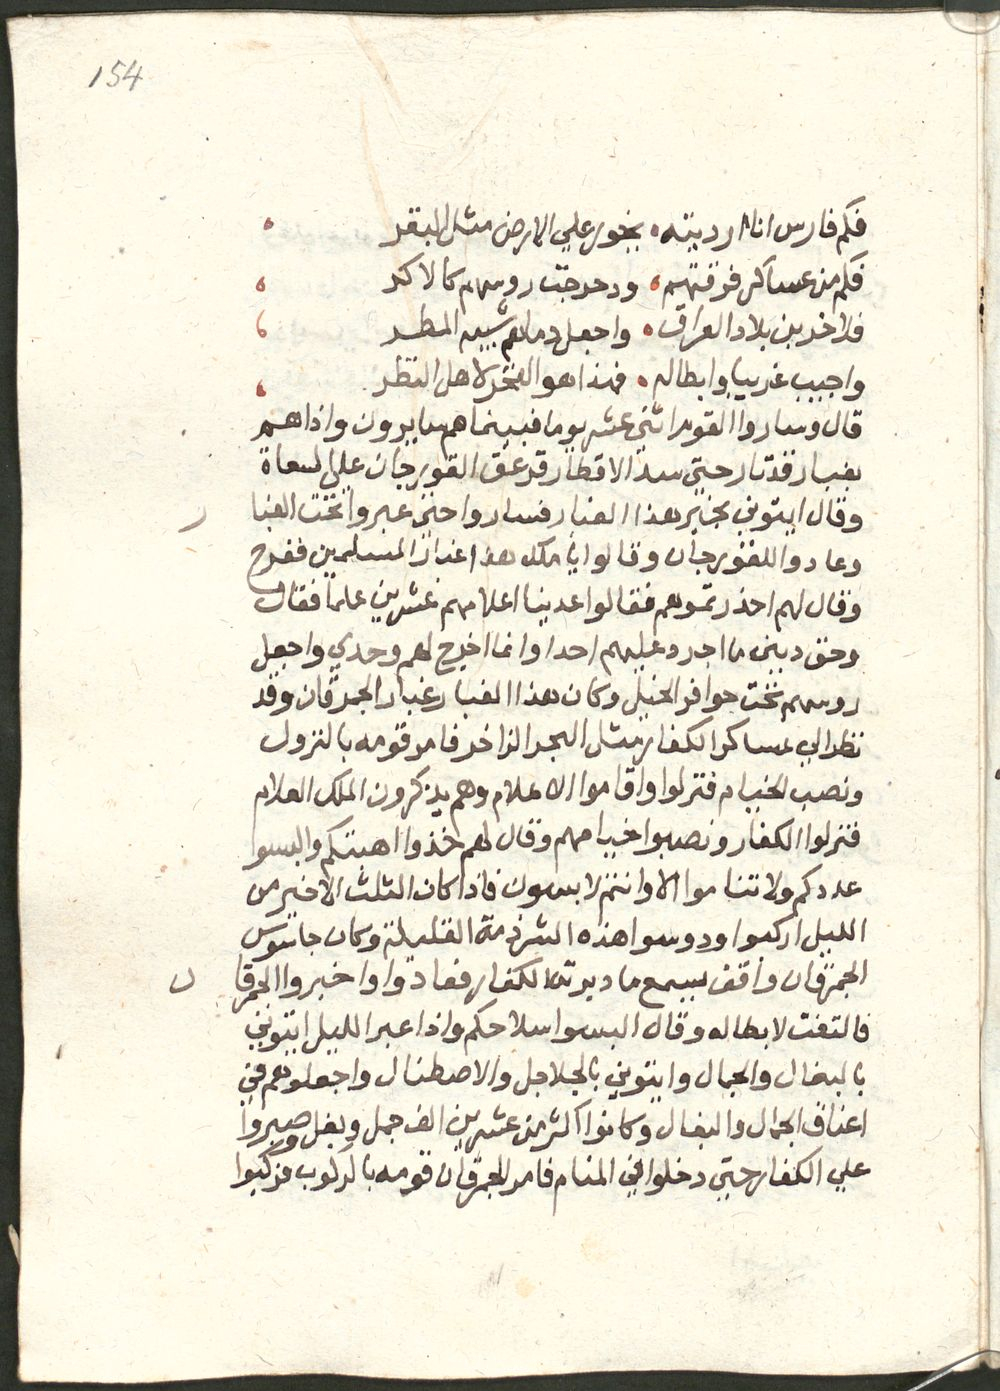 154
فكم فارس انا ارديته ۰ يخور علي الارض مثل البقر ۰
فكم من عساكر فرقتهم ۰ ودحرجت روسهم كالاكر ۰
فلاخربن بلاد العراق ۰ واجعل دماهم شبيه المطر ۰
واجيب غريبا وابطاله ۰ فهذا هو الفخر لاهل النظر ۰
قال وساروا القوم اثني عشر يوما فبينماهم سايرون واذاهم
بغبار قد ثار حتي سد الاقطار فزعق القورجان علي السعاة
وقال ايتوني بخبر هذا الغبار فساروا حتي عبروا تحت الغبا ر
وعادوا للقورجان وقالوا يا ملك هذا غبار المسلمين ففرح
وقال لهم احذرتموهم فقالوا عدينا اعلامهم عشرين علما فقال
وحق ديني ما اجرد عليهم احدا وانما اخرج لهم وحدي واجعل
روسهم تحت حوافر الخيل وكان هذا الغبار غبار الجمرقان وقد
نظر الي عساكر الكفار مثل البحر الزاخر فامر قومه بالنزول
ونصب الخيام فنزلوا واقاموا الاعلام وهم يذكرون الملك العلام
فنزلوا الكفار ونصبوا خيامهم وقال لهم خذوا اهبتكم والبسوا
عددكم ولا تناموا الا وانتم لابسون فاذا كان الثلث الاخير من
الليل اركبوا ودوسوا هذه الشرذمة القليلة وكان جاسوس
الجمرقان واقف يسمع ما دبرته الكفار فعادوا واخبروا الجمرقا ن
فالتفت لابطاله وقال البسوا سلاحكم واذا عبر الليل ايتوني
بالبغال والجمال وايتوني بالجلاجل والاصطنال واجعلوهم في
اعناق الجمال والبغال وكانوا اكثر من عشرين الف جمل وبغل وصبروا
علي الكفار حتي دخلوا في المنام فامر الجمرقان قومه بالركوب فركبوا